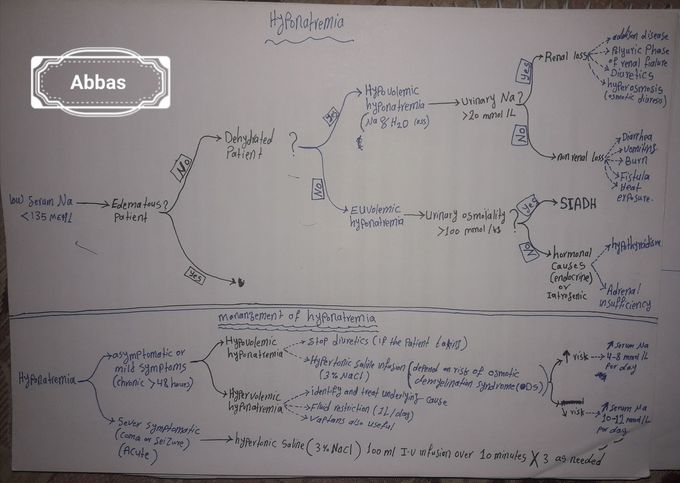 Hyponatremia
Abbas
low serum Na
<135 mEq/L
Edematous?
patient
NO
yes
Dehydrated
Patient
?
yes
NO
Hypovolemic
hyponatremia
(Na & H2O loss)
Urinary Na?
>20 mmol/L
yes
NO
Renal loss
addison disease
Polyuric Phase
of renal failure
Diuretics
hyperosmosis
(osmotic diuresis)
non renal loss
Diarrhea
vomiting
Burn
Fistula
Heat
exposure.
Euvolemic
hyponatremia
Urinary osmolality
>100 mmol/kg
?
yes
NO
SIADH
hormonal
causes
(endocrine)
or
Iatrogenic
hypothyroidism
Adrenal
insufficiency
management of hyponatremia
Hyponatremia
asymptomatic or
mild symptoms
(chronic >48 hours)
Hypovolemic
hyponatremia
Stop diuretics (if the patient taken)
Hypertonic saline infusion
(3% NaCl)
(depend on risk of osmotic
demyelination syndrome (ODS)
↑ risk
↑ serum Na
4-8 mmol/L
per day
↓ risk
↑ serum Na
10-12 mmol/L
per day
Hypervolemic
hyponatremia
identify and treat underlying cause
Fluid restriction (1L/day)
vaptans also useful
Sever symptomatic
(coma or seizure)
(Acute)
hypertonic saline (3% NaCl) 100 ml I.V infusion over 10 minutes X 3 as needed